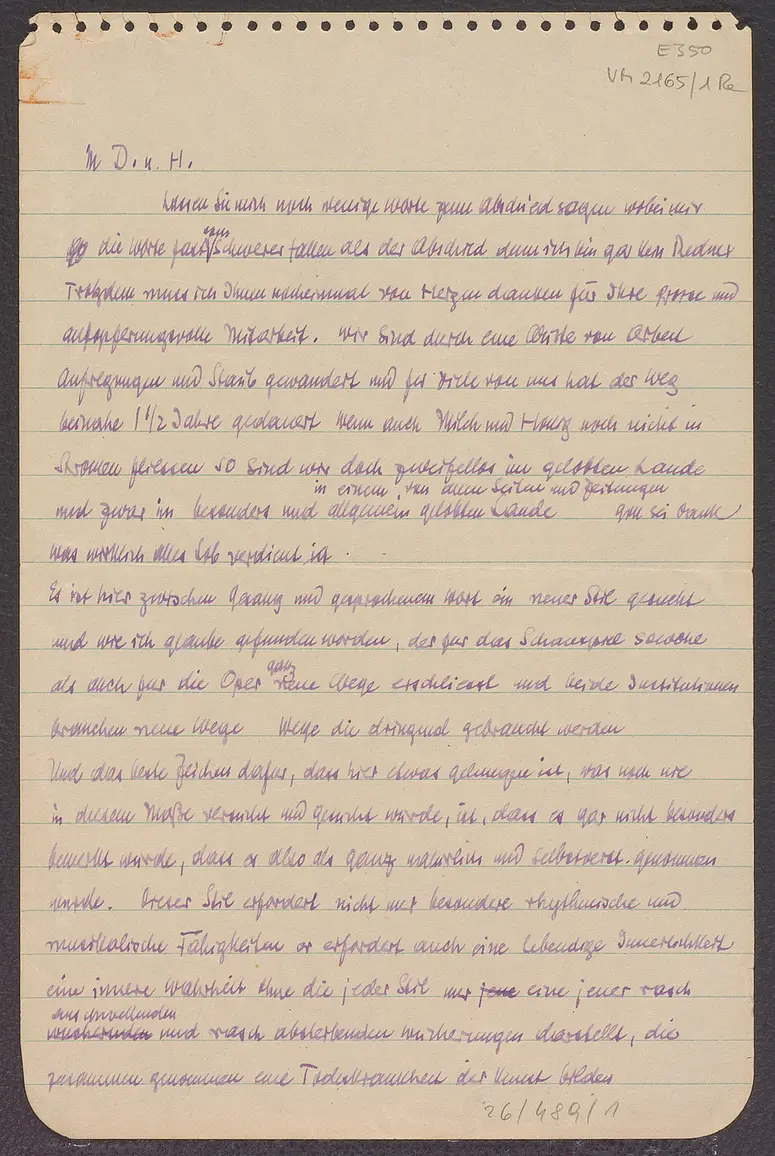 E350
VM 2165/1 Re
M D. u. H.
Lassen Sie mich noch wenige Worte zum Abschied sagen wobei mir
die Worte fast schwerer fallen als der Abschied denn ich bin gar kein Redner
Trotzdem muss ich Ihnen nocheinmal von Herzen danken für Ihre grosse und
aufopferungsvolle Mitarbeit. Wir sind durch eine Wüste von Arbeit
Aufregungen und Staub gewandert und für viele von uns hat der Weg
beinahe 1 1/2 Jahre gedauert Wenn auch Milch und Honig noch nicht in
Strömen fliessen so sind wir doch zweifellos im gelobten Lande
in einem, von allen Seiten und Zeitungen
und zwar in besonders und allgemein gelobten Lande gott sei dank
was wirklich alles Lob verdient ist.
Es ist hier zwischen Gesang und gesprochenem Wort ein neuer Stil gesucht
und wie ich glaube gefunden worden, der für das Schauspiel sowohl
ganz
als auch für die Oper neue Wege erschliesst und beide Institutionen
brauchen neue Wege Wege die dringend gebraucht werden
Und das beste Zeichen dafür, dass hier etwas gelungen ist, was noch nie
in diesem Maße versucht und gesucht wurde, ist, dass es gar nicht besonders
bemerkt wurde, dass es also als ganz natürlich und selbstverst. genommen
wurde. Dieser Stil erfordert nicht nur besondere rhythmische und
musikalische Fähigkeiten er erfordert auch eine lebendige Innerlichkeit
eine innere Wahrheit ohne die jeder Stil nur jene eine jener rasch
anschwellenden
wuchernden und rasch absterbenden Wucherungen darstellt, die
zusammen genommen eine Todeskrankheit der Kunst bilden
26/489/1